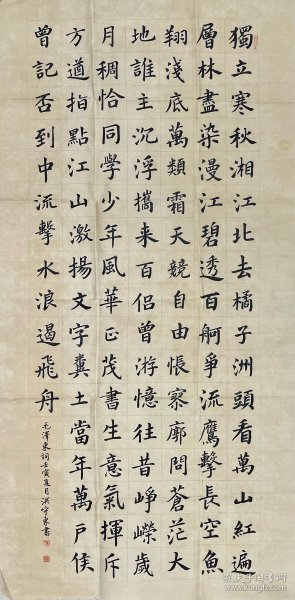 獨立寒秋湘江北去橘子洲頭看萬山紅遍
層林盡染漫江碧透百舸爭流鷹擊長空魚
翔淺底萬類霜天競自由悵寥廓問蒼茫大
地誰主沉浮攜来百侣曾游憶往昔崢嶸歲
月稠恰同學少年風華正茂書生意氣揮斥
方遒指點江山激揚文字糞土當年萬户侯
曾記否到中流擊水浪遏飛舟
毛澤東詞壬寅夏月洪書